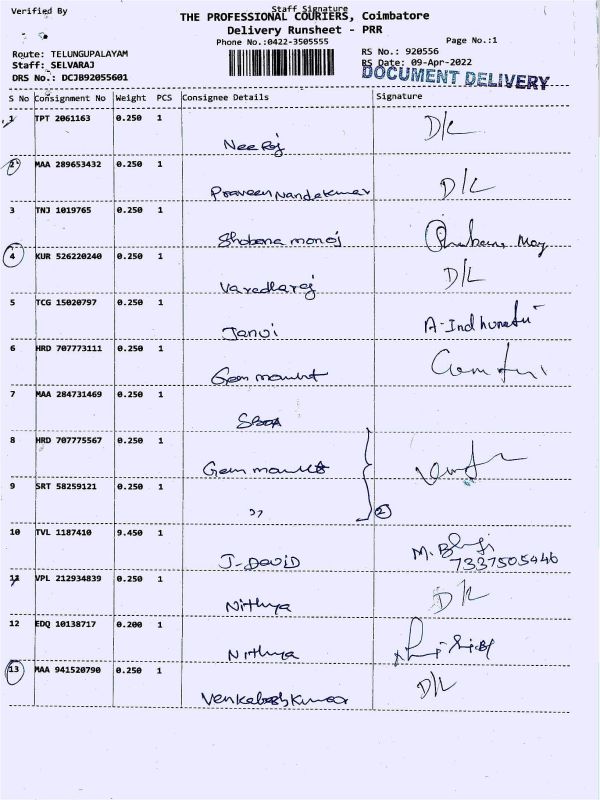 Verified By
Staff Signature
THE PROFESSIONAL COURIERS, Coimbatore
Delivery Runsheet - PRR
Phone No.:0422-3505555
Page No.:1
Route: TELUNGUPALAYAM
RS No.: 920556
Staff: SELVARAJ
RS Date: 09-Apr-2022
DRS No.: DCJB92055601
DOCUMENT DELIVERY
S No Consignment No Weight PCS Consignee Details Signature
1 TPT 2061163 0.250 1
Neeraj D/L
2 MAA 289653432 0.250 1
Praveen Nandakumar D/L
3 TNJ 1019765 0.250 1
Shobana manoj
4 KUR 526220240 0.250 1
Varadharaj D/L
5 TCG 15020797 0.250 1
Janvi
6 HRD 707773111 0.250 1
Gem mount
7 MAA 284731469 0.250 1
8 HRD 707775567 0.250 1
Gem mount
9 SRT 58259121 0.250 1
" 2
10 TVL 1187410 9.450 1
J. David M.
7337505446
11 VPL 212934839 0.250 1
Nithya D/L
12 EDQ 10138717 0.200 1
Nithya
13 MAA 941520790 0.250 1
Venkateshkumar D/L